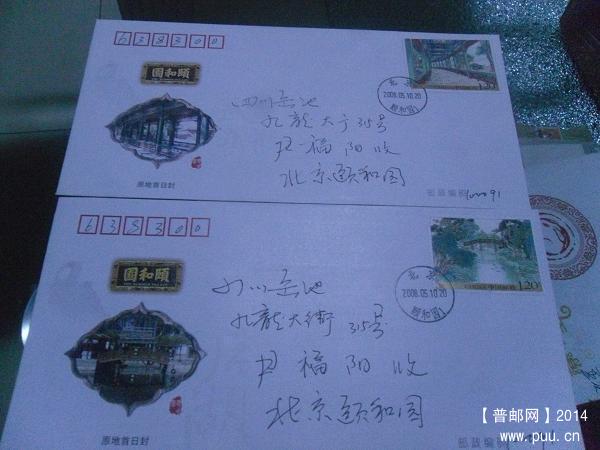 638300
園和頤
北京
2008.05.10.20
颐和园
1.20
四川岳池
九龍大个315号
尹福阳收
北京颐和园
原地首日封
邮政编码100091
638300
園和頤
北京
2008.05.10.20
颐和园
1.20
四川岳池
九龍大街315号
尹福阳收
北京颐和园
原地首日封
邮政编码
【普邮网】2014
www.puu.cn